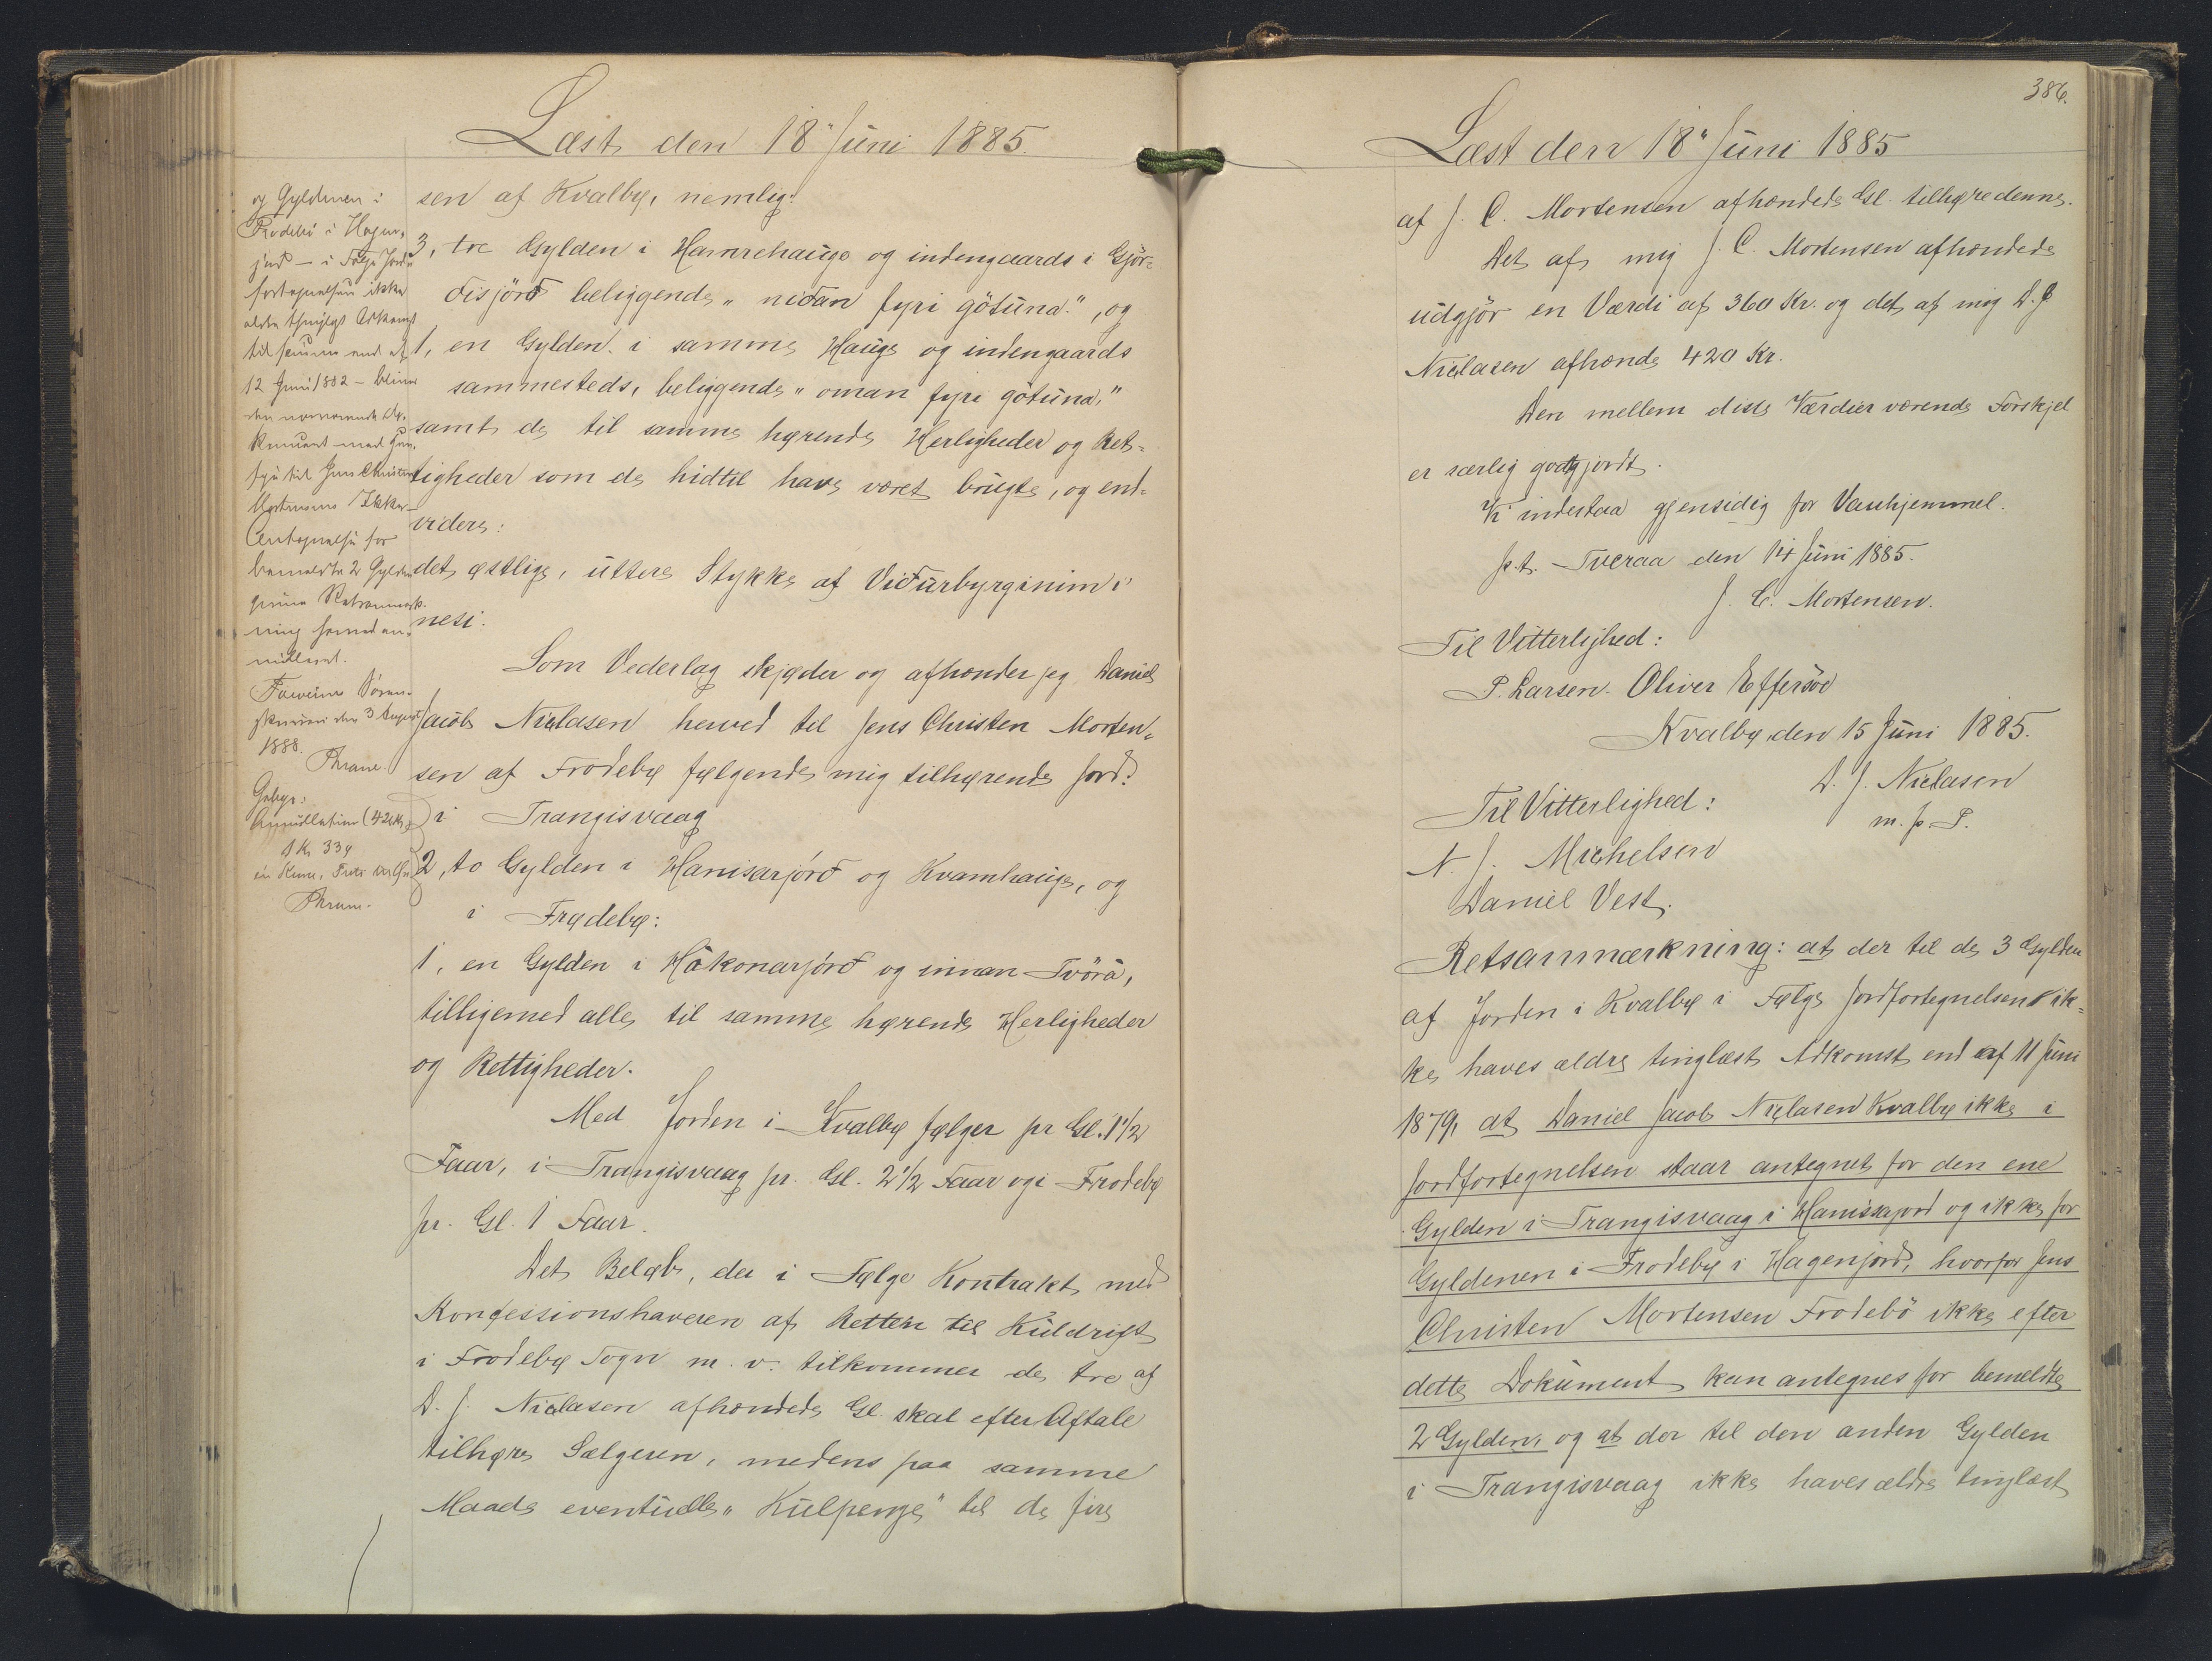 Læst den 18 Juni 1885.
og Gyldenen i
Frodebö i Hagen-
jord – i Følge Jord-
fortegnelsen ikke
ældre tinglyst Adkomst
til samme end af
12 Juni 1882 – bliver
den nærværende Do-
kument med Hen-
syn til Jens Christen
Mortensens Ikke-
Antegnelse for
bemeldte 2 Gylden
givne Retsanmærk-
ning herved an-
nulleret.
Færøerne Sören-
skriveri den 3 August
1888.
Thrane.
Gebyr:
Annullation (42 Kr.)
1 Kr. 334
en Krone,
Thrane.
sen af Kvalbø, nemlig:
3, tre Gylden i Hamrehauge og indengaards i Gjör-
disjörð beliggende „niðan fyri götuna.", og
1, en Gylden i samme Hauge og indengaards
sammesteds, beliggende „oman fyri götuna,"
samt de til samme hørende Herligheder og Ret-
tigheder som de hidtil have været brugte, og end-
videre:
det østlige, uttere Stykke af Viðurbyrginum i
nesi.
Som Vederlag skjøder og afhænder jeg Daniel
Jacob Niclasen herved til Jens Christen Morten-
sen af Frodebø følgende mig tilhørende Jord:
i Trangisvaag
2, to Gylden i Hanisarjörð og Kvamhauge, og
i Frodebø:
1, en Gylden i Hákonarjörð og innan Tvörá,
tilligemed alle til samme hørende Herligheder
og Rettigheder.
Med Jorden i Kvalbø følger pr Gl. 1 1/2
Faar, i Trangisvaag pr. Gl. 2 1/2 Faar og i Frodebø
pr. Gl. 1 Faar.
Det Beløb, der i Følge Kontrakt med
Koncessionshaveren af Retten til Kuldrift
i Frodebø Sogn m. v. tilkommer de tre af
D. J. Niclasen afhændede Gl. skal efter Aftale
tilhøre Sælgeren, medens paa samme
Maade eventuelle „Kulpenge" til de fire
386.
Læst den 18 Juni 1885
af J. C. Mortensen afhændede Gl. tilhøre denne.
Det af mig J. C. Mortensen afhændede
udgjör en Værdi af 360 Kr. og det af mig D. J
Niclasen afhænde 420 Kr.
Den mellem disse Værdier værende Forskjel
er særlig godtgjordt.
Vi indestaa gjensidig for Vanhjemmel.
p.t. Tveraa den 14 Juni 1885.
J. C. Mortensen.
Til Vitterlighed:
P. Larsen. Oliver Effersöe
Kvalbø den 15 Juni 1885.
D. J. Niclasen
m. p. P.
Til Vitterlighed:
N. J. Michelsen
Daniel Vest.
Retsanmærkning: at der til de 3 Gylden
af Jorden i Kvalbø i Følge Jordfortegnelsen ik-
ke haves ældre tinglæst Adkomst end af 11 Juni
1879, at Daniel Jacob Niclasen Kvalbø ikke i
Jordfortegnelsen staar antegnet for den ene
Gylden i Trangisvaag i Hanissajord og ikke for
Gyldenen i Frodebø i Hagenjord, hvorfor Jens
Christen Mortensen Frodebö ikke efter
dette Dokument kan antegnes for bemeldte
2 Gylden, og at der til den anden Gylden
i Trangisvaag ikke haves ældre tinglæst